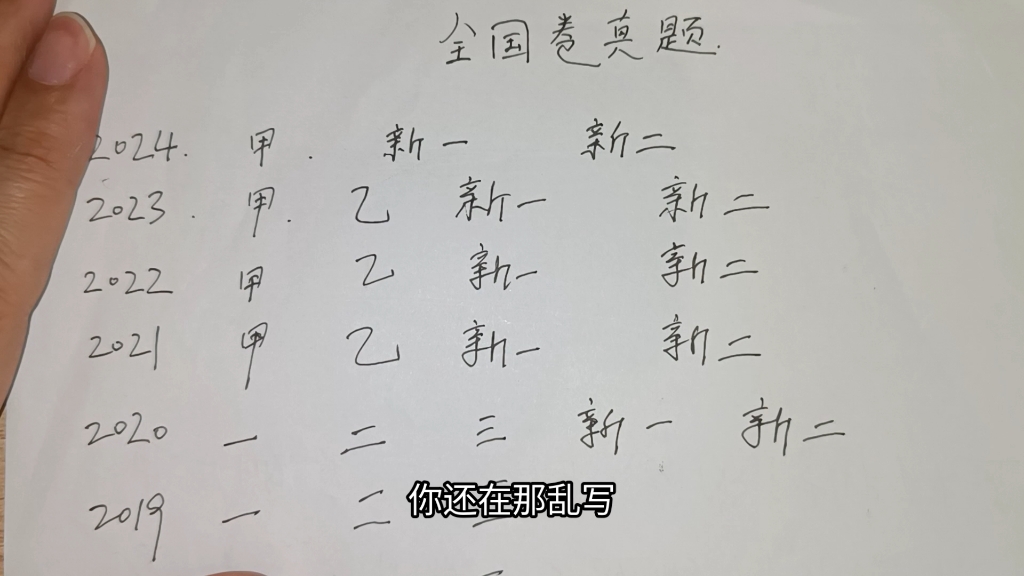 全国卷真题.
2024. 甲. 新一 新二
2023. 甲. 乙 新一 新二
2022 甲 乙 新一 新二
2021 甲 乙 新一 新二
2020 一 二 三 新一 新二
2019 一 二
你还在那乱写